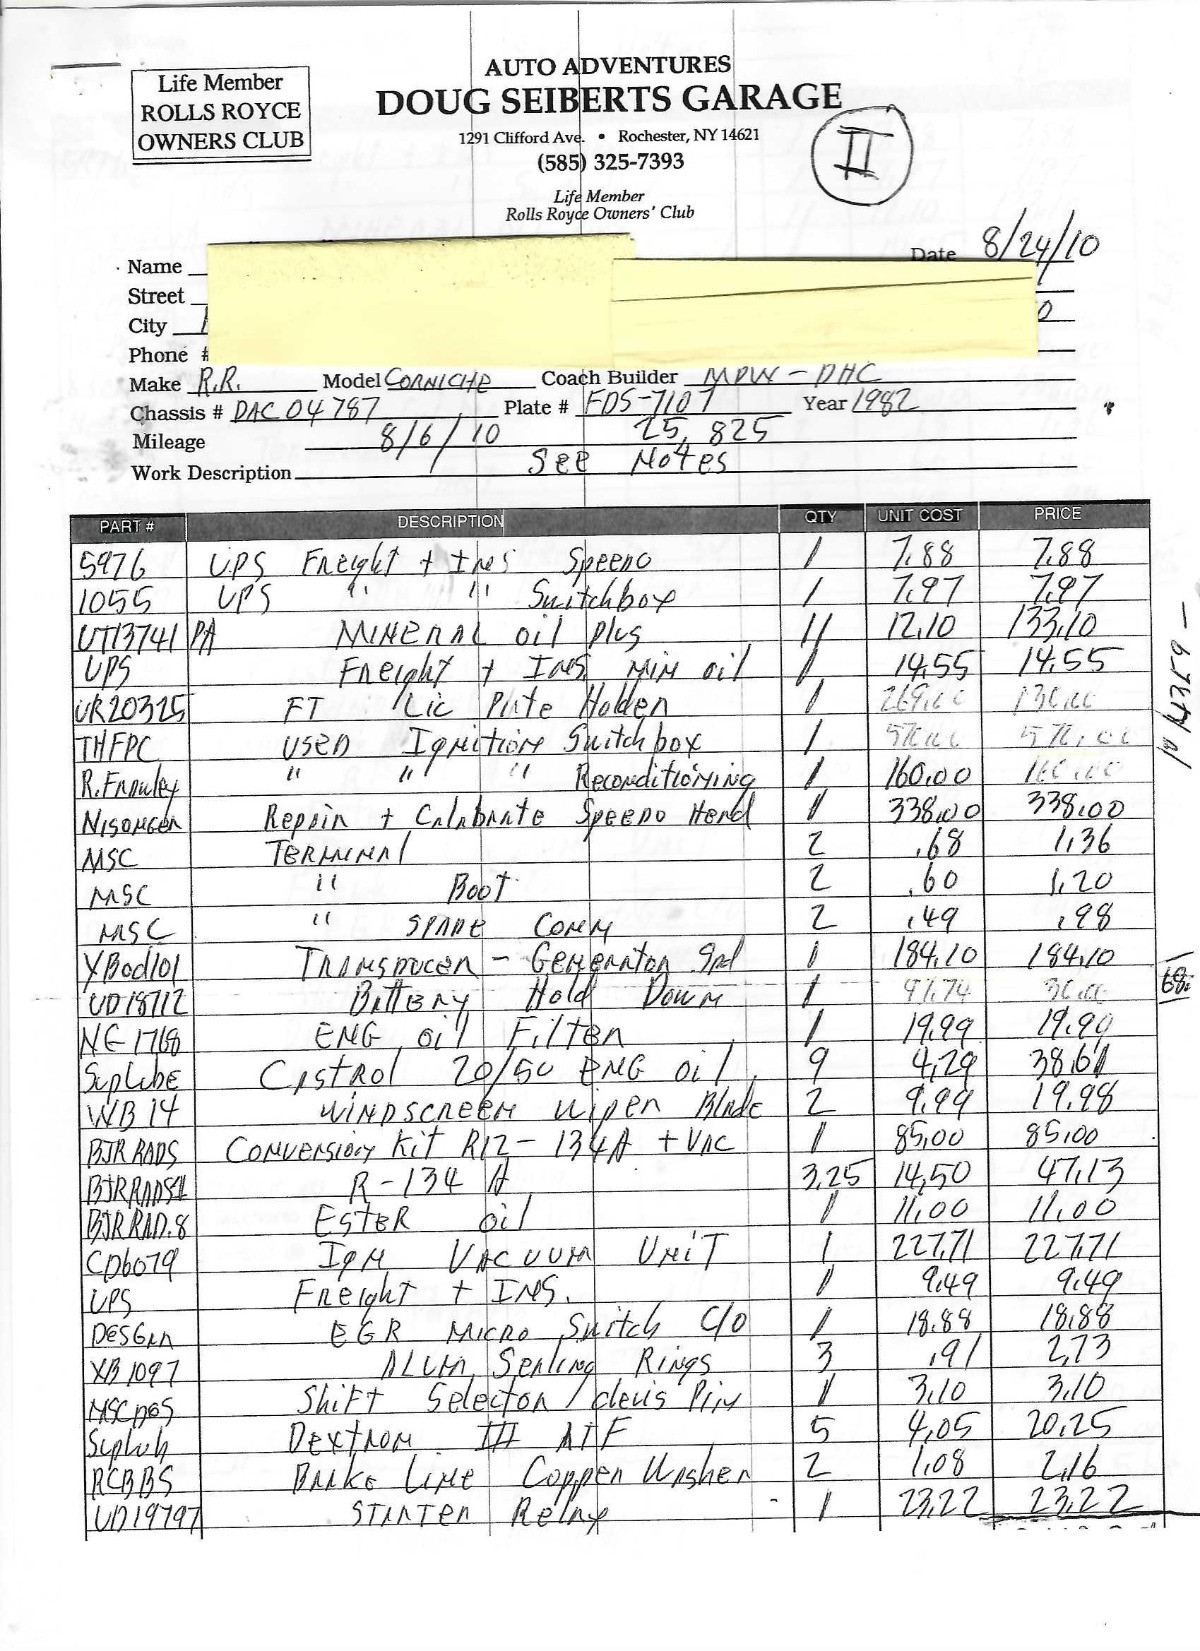 AUTO ADVENTURES
Life Member
ROLLS ROYCE
OWNERS CLUB
DOUG SEIBERTS GARAGE
1291 Clifford Ave. • Rochester, NY 14621
(585) 325-7393
II
Life Member
Rolls Royce Owners' Club
Name Date 8/24/10
Street
City
Phone #
Make R.R. Model CORNICHE Coach Builder MPW-DHC
Chassis # DAC04787 Plate # FDS-7107 Year 1982
Mileage 8/6/10 25,825
Work Description See Notes
PART # DESCRIPTION QTY UNIT COST PRICE
5976 UPS Freight + INS Speedo 1 7.88 7.88
1055 UPS " " Switchbox 1 7.97 7.97
UT13741PA MINERAL oil plus 11 12.10 133.10
UPS Freight + INS Min oil 1 14.55 14.55
UR20325 FT Lic Plate Holder 1
THFPC USED Ignition Switchbox 1
R. Frawley " " " Reconditioning 1 160.00 160.00
Nisonger Repair + Calabrate Speedo Head 1 338.00 338.00
MSC TERMINAL 2 .68 1.36
MSC " Boot 2 .60 1.20
MSC " SPADE Conn 2 .49 .98
Transducer - Generator Spd 1 184.10 184.10
UD18712 Battery Hold Down 1
ENG oil Filter 1 19.99 19.99
Castrol 20/50 ENG oil 9 4.29 38.61
WB14 WINDSCREEN wiper Blade 2 9.99 19.98
BJR RADS Conversion Kit R12-134A + VAC 1 85.00 85.00
R-134A 3.25 14.50 47.13
BJRRAD.8 Ester oil 1 11.00 11.00
CD6079 Ign VACUUM UNIT 1 227.71 227.71
UPS Freight + INS. 1 9.49 9.49
EGR Micro Switch C/O 1 18.88 18.88
XB1097 ALUM Sealing Rings 3 .91 2.73
Shift Selector/clevis Pin 1 3.10 3.10
Dextron III ATF 5 4.05 20.25
RCBBS Brake Line Copper Washer 2 1.08 2.16
UD19797 Starter Relay 1 23.22 23.22